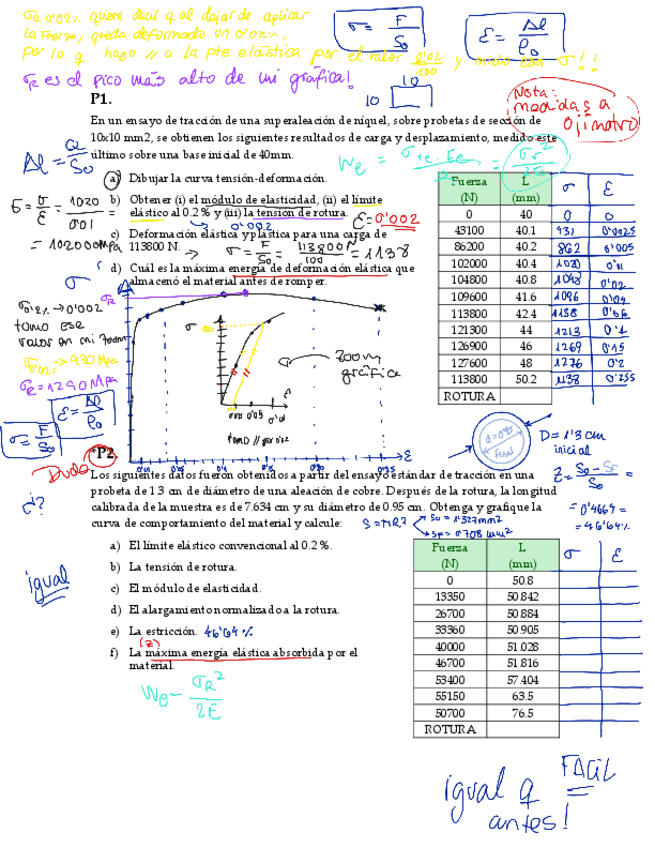 σ = F / S₀
ε = Δl / l₀
σR es el pico más alto de mi gráfica!
10
10
Nota: medidas a ojímetro
P1.
En un ensayo de tracción de una superaleación de níquel, sobre probetas de sección de
10x10 mm2, se obtienen los siguientes resultados de carga y desplazamiento, medido este
último sobre una base inicial de 40mm.
a) Dibujar la curva tensión-deformación.
b) Obtener (i) el módulo de elasticidad, (ii) el límite
elástico al 0.2 % y (iii) la tensión de rotura.
0'002
ε = 0'002
c) Deformación elástica y plástica para una carga de
113800 N.
σ = F / S₀ = 113800N / 100 = 1138
d) Cuál es la máxima energía de deformación elástica que
almacenó el material antes de romper.
E = σ / ε = 1020 / 0'01
= 102000MPa
Fuerza (N) L (mm) σ ε
0 40 0 0
43100 40.1 431 0'0025
86200 40.2 862 0'005
102000 40.4 1020 0'01
104800 40.8 1048 0'02
109600 41.6 1096 0'04
113800 42.4 1138 0'06
121300 44 1213 0'1
126900 46 1269 0'15
127600 48 1276 0'2
113800 50.2 1138 0'255
ROTURA
σ
σR
σ0'2% → 0'002
tomo ese
valor en mi zoom
σR = 1290 MPa
σ
zoom
gráfica
ε
ε = Δl / l₀
σ = F / S₀
Duda
*P2.
Los siguientes datos fueron obtenidos a partir del ensayo estándar de tracción en una
probeta de 1.3 cm de diámetro de una aleación de cobre. Después de la rotura, la longitud
calibrada de la muestra es de 7.634 cm y su diámetro de 0.95 cm. Obtenga y grafique la
curva de comportamiento del material y calcule:
final
D = 1'3 cm
inicial
Z = S₀ - SF / S₀
= 0'4664 =
= 46'64%
¿?
igual
a) El límite elástico convencional al 0.2%.
b) La tensión de rotura.
c) El módulo de elasticidad.
d) El alargamiento normalizado a la rotura.
e) La estricción. 46'64%
(Z)
f) La máxima energía elástica absorbida por el
material.
We = σR² / 2E
Fuerza (N) L (mm) σ ε
0 50.8
13350 50.842
26700 50.884
33360 50.905
40000 51.028
46700 51.816
53400 57.404
55150 63.5
50700 76.5
ROTURA
igual q
FACIL
antes!